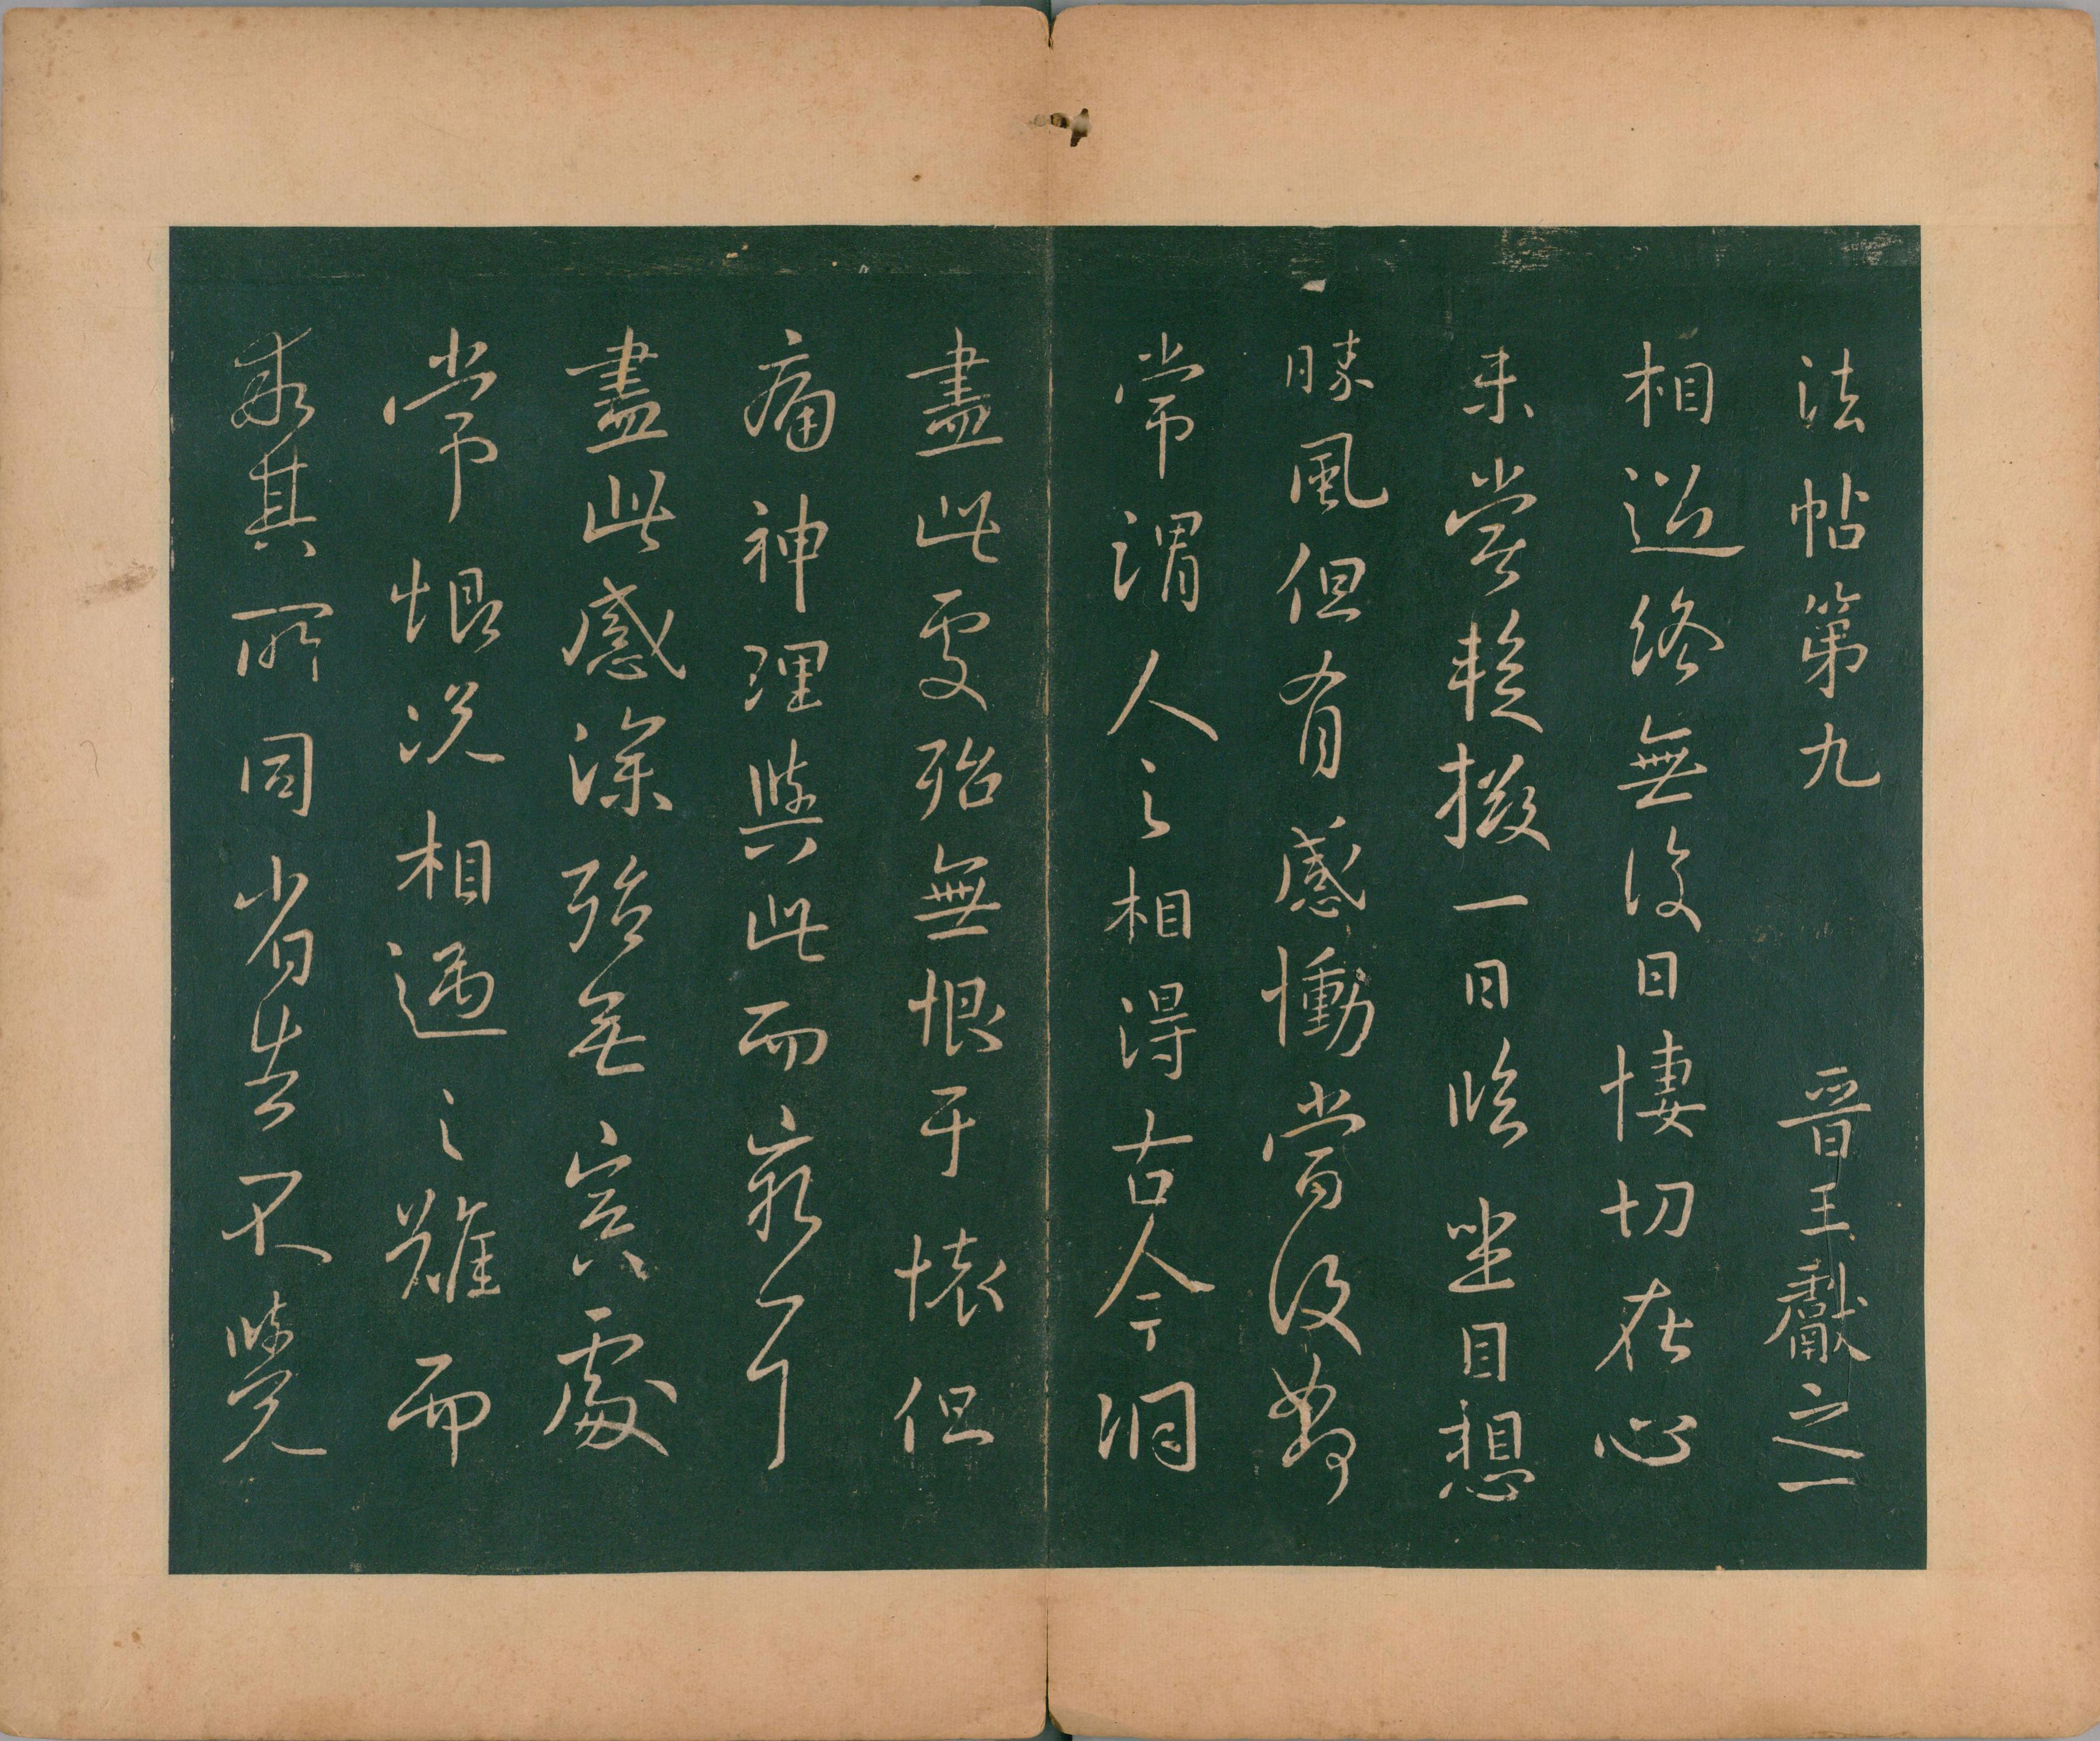 法帖第九　晉王獻之一
相迎終無復日悽切在心
未嘗暫掇一日臨坐目想
勝風但有感慟當復如何
常謂人之相得古今洞
盡此處殆無恨于懷但
痛神理與此而窮耳
盡此感深殆無冥處
常恨況相遇之難而
乖其所同省告不覺